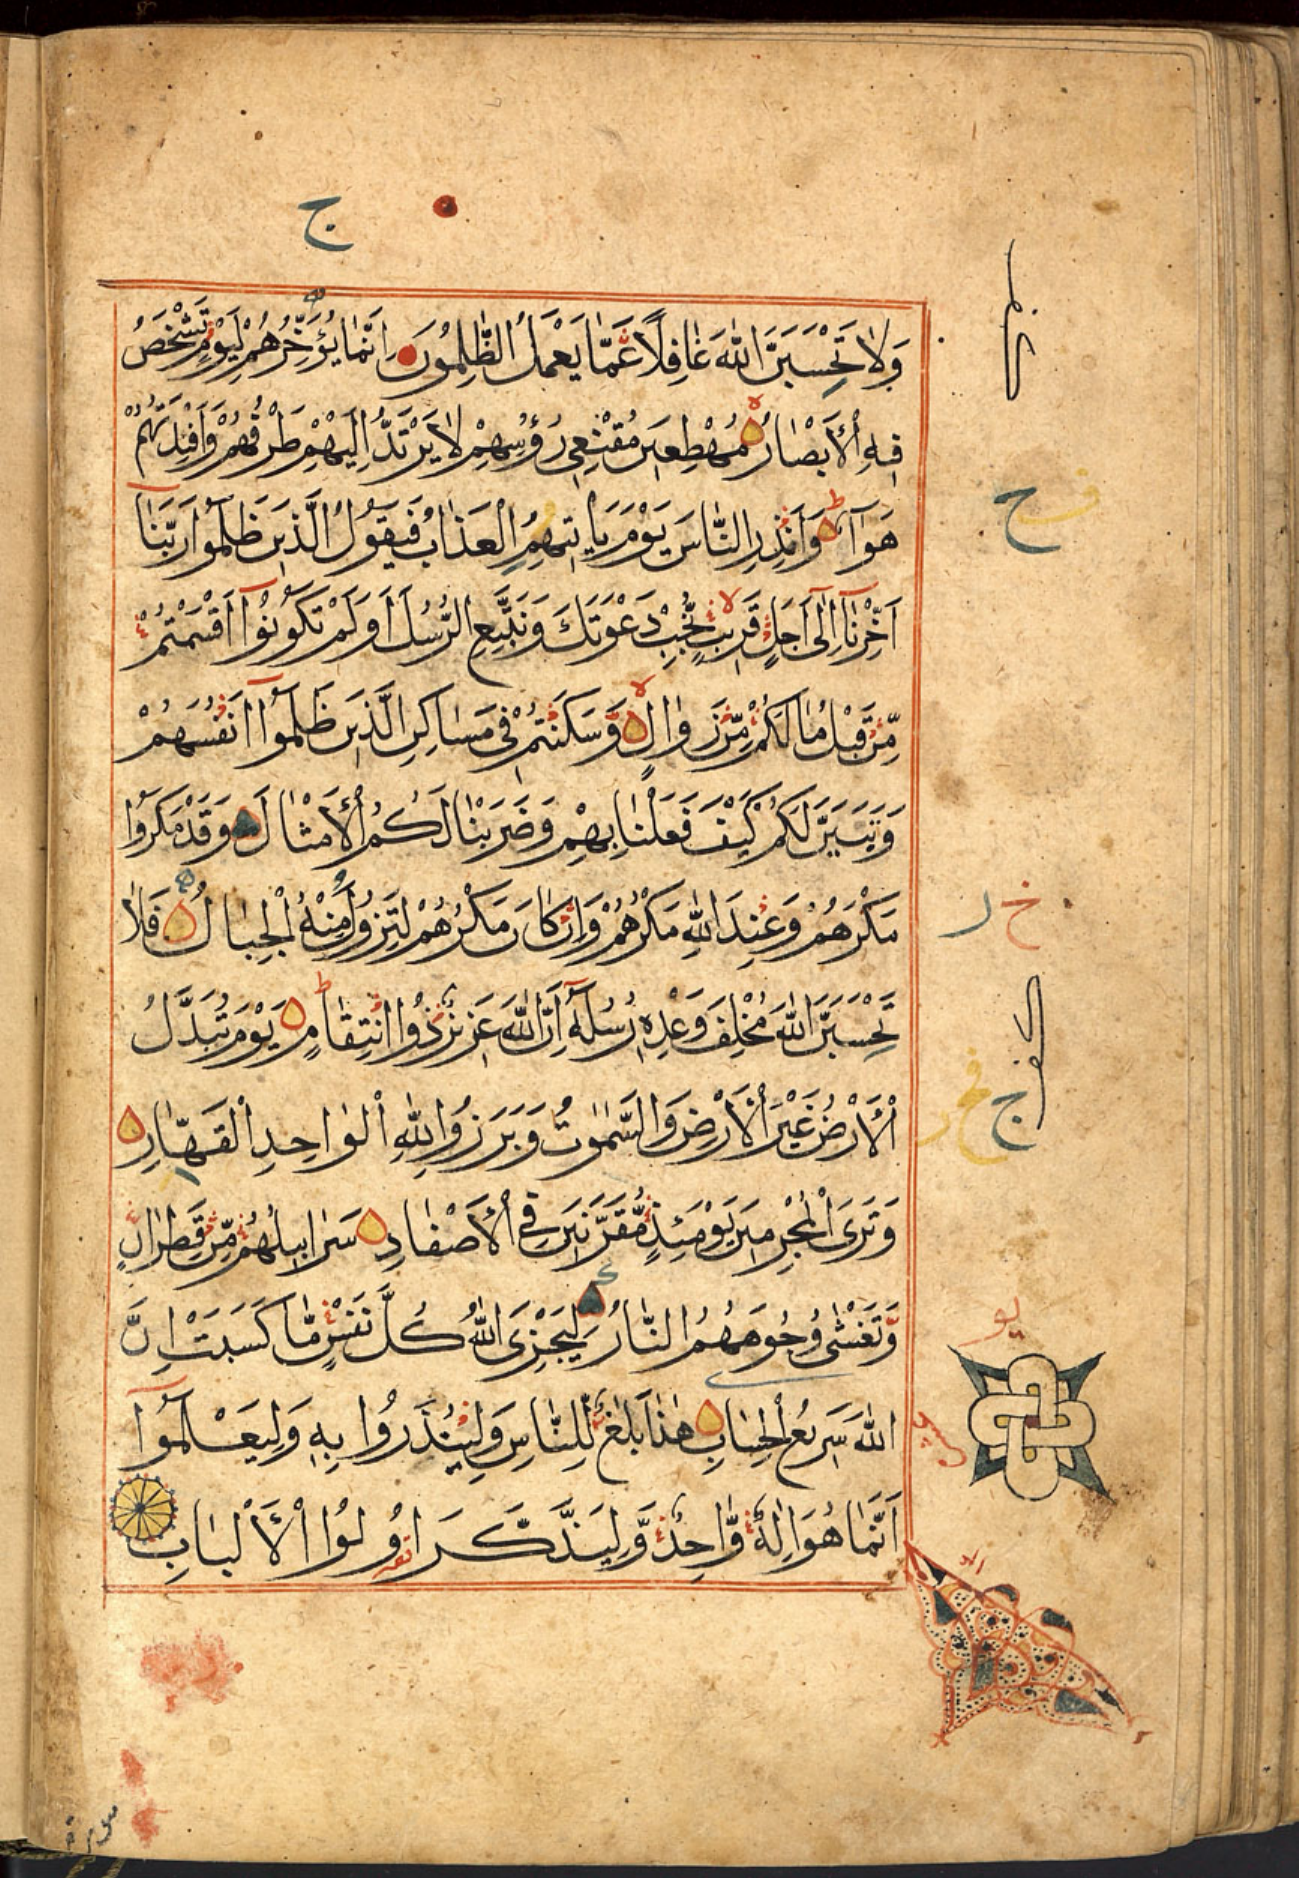 وَلَا تَحْسَبَنَّ اللّٰهَ غَافِلًا عَمَّا يَعْمَلُ الظّٰلِمُونَ اِنَّمَا يُؤَخِّرُهُمْ لِيَوْمٍ تَشْخَصُ
فِيهِ الْاَبْصَارُ مُهْطِعِينَ مُقْنِعِي رُؤُسِهِمْ لَا يَرْتَدُّ اِلَيْهِمْ طَرْفُهُمْ وَاَفْئِدَتُهُمْ
هَوَآءٌ وَاَنْذِرِ النَّاسَ يَوْمَ يَاْتِيهِمُ الْعَذَابُ فَيَقُولُ الَّذِينَ ظَلَمُوا رَبَّنَا
اَخِّرْنَآ اِلٰٓى اَجَلٍ قَرِيبٍ نُجِبْ دَعْوَتَكَ وَنَتَّبِعِ الرُّسُلَ اَوَلَمْ تَكُونُوٓا اَقْسَمْتُمْ
مِّنْ قَبْلُ مَا لَكُمْ مِّنْ زَوَالٍ وَّسَكَنْتُمْ فِي مَسَاكِنِ الَّذِينَ ظَلَمُوٓا اَنْفُسَهُمْ
وَتَبَيَّنَ لَكُمْ كَيْفَ فَعَلْنَا بِهِمْ وَضَرَبْنَا لَكُمُ الْاَمْثَالَ وَقَدْ مَكَرُوا
مَكْرَهُمْ وَعِنْدَ اللّٰهِ مَكْرُهُمْ وَاِنْ كَانَ مَكْرُهُمْ لِتَزُولَ مِنْهُ الْجِبَالُ فَلَا
تَحْسَبَنَّ اللّٰهَ مُخْلِفَ وَعْدِهِ رُسُلَهُٓ اِنَّ اللّٰهَ عَزِيزٌ ذُوا انْتِقَامٍ يَوْمَ تُبَدَّلُ
الْاَرْضُ غَيْرَ الْاَرْضِ وَالسَّمٰوٰتُ وَبَرَزُوا لِلّٰهِ الْوَاحِدِ الْقَهَّارِ
وَتَرَى الْمُجْرِمِينَ يَوْمَئِذٍ مُّقَرَّنِينَ فِي الْاَصْفَادِ سَرَابِيلُهُمْ مِّنْ قَطِرَانٍ
وَّتَغْشٰى وُجُوهَهُمُ النَّارُ لِيَجْزِيَ اللّٰهُ كُلَّ نَفْسٍ مَّا كَسَبَتْ اِنَّ
اللّٰهَ سَرِيعُ الْحِسَابِ هٰذَا بَلَاغٌ لِّلنَّاسِ وَلِيُنْذَرُوا بِهِ وَلِيَعْلَمُوٓا
اَنَّمَا هُوَ اِلٰهٌ وَّاحِدٌ وَّلِيَذَّكَّرَ اُولُوا الْاَلْبَابِ